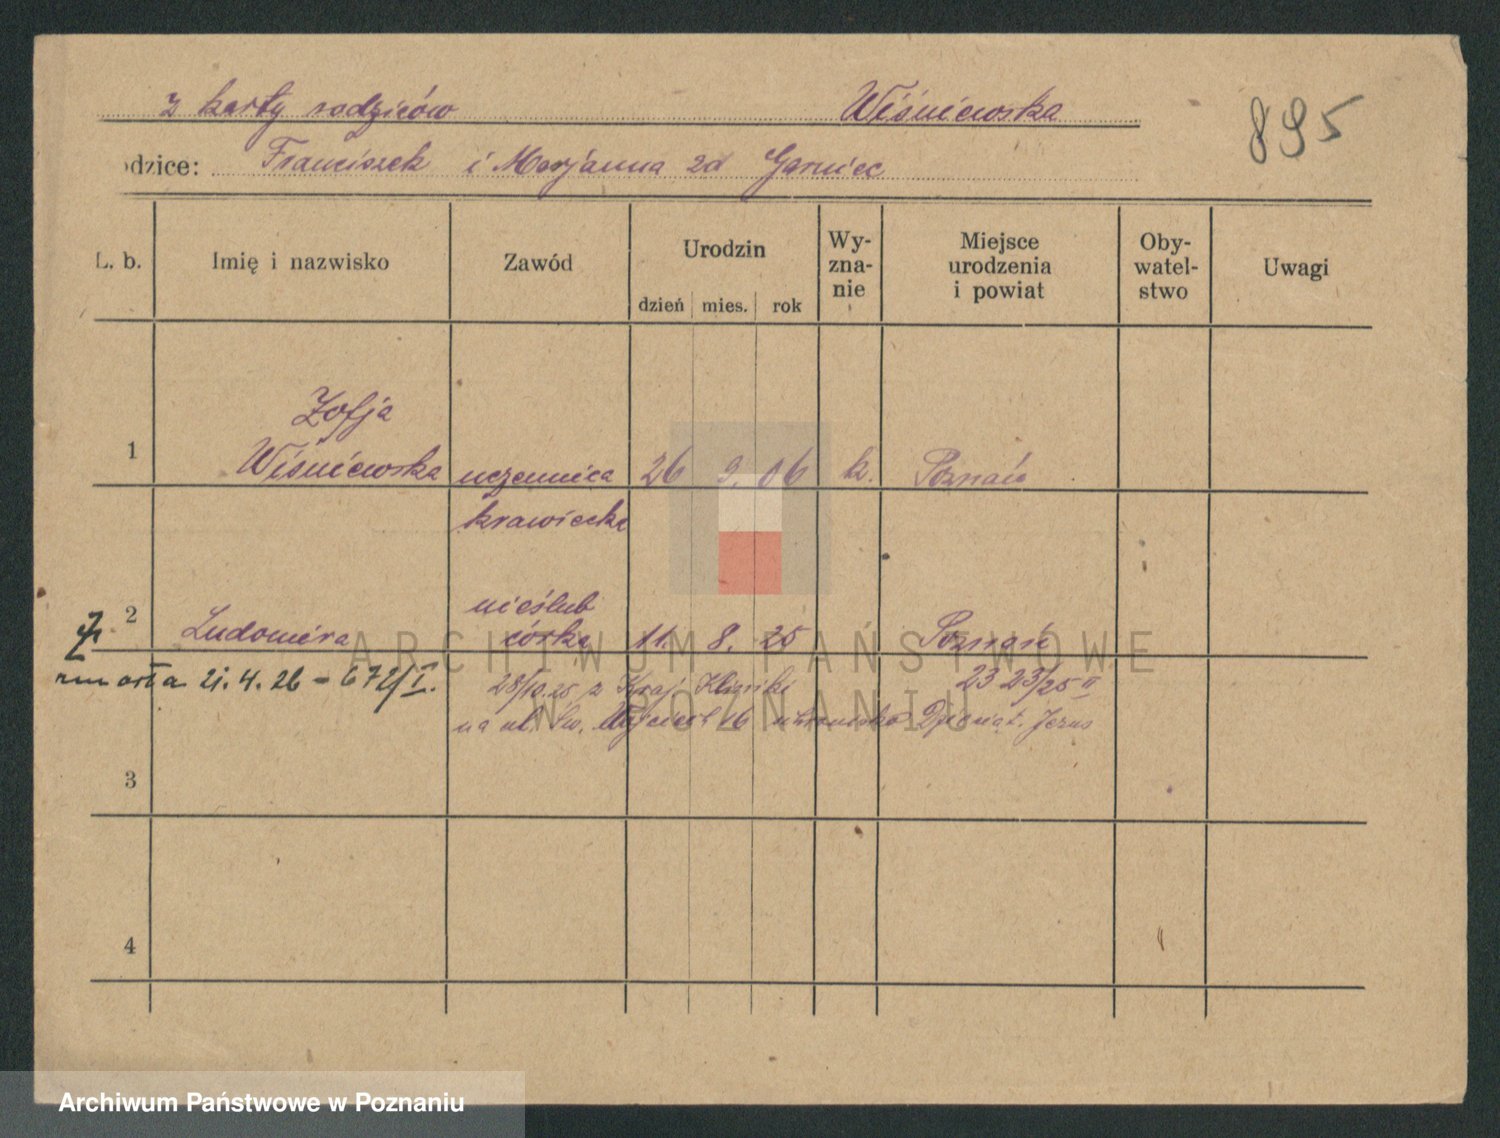 z karty rodziców Wiśniewska
895
odzice: Franciszek i Marjanna zd Garniec
L. b. Imię i nazwisko Zawód Urodzin dzień mies. rok Wy-zna-nie Miejsce urodzenia i powiat Oby-watel-stwo Uwagi
Zofja
1 Wiśniewska uczennica 26 9. 06 k. Poznań
krawiecka
nieślub
2 Ludomira córka 11. 8. 25 Poznań
zmarła 21.4.26 - 672/I. 28/10.25 z Kraj. Kliniki 23 23/25 II
na ul. Św. Wojciech 16 Dzieciąt. Jezus
3
4
ARCHIWUM PAŃSTWOWE
W POZNANIU
Archiwum Państwowe w Poznaniu